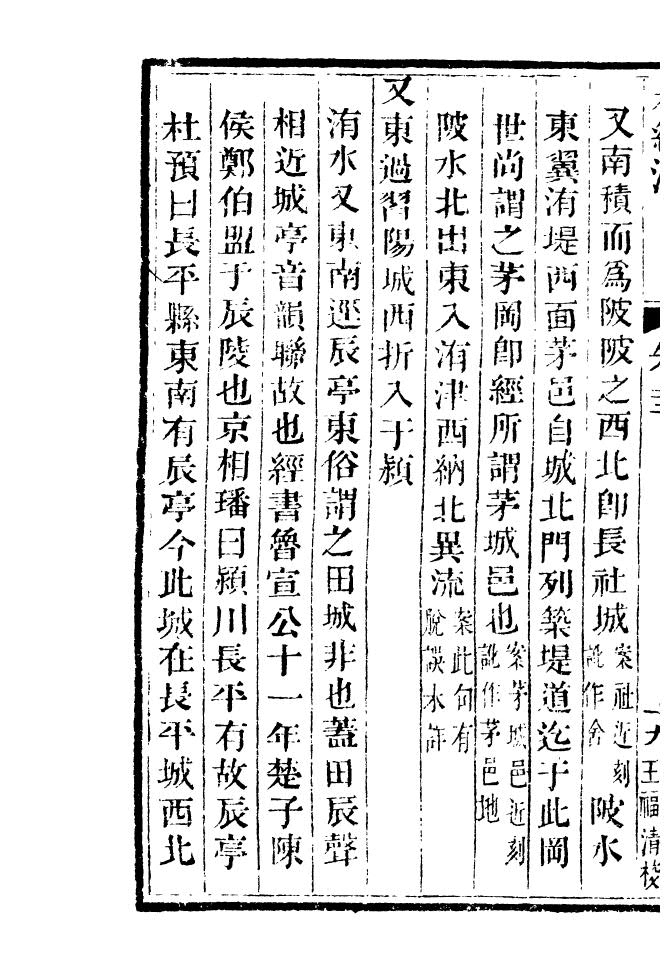 水經注 卷二 九 王福清校
又南積而爲陂陂之西北卽長社城案社近刻訛作舍陂水
東翼洧堤西面茅邑自城北門列築堤道迄于此岡
世尚謂之茅岡卽經所謂茅城邑也案茅城邑近刻訛作茅邑地
陂水北出東入洧津西納北異流案此句有脫誤未詳
又東過習陽城西折入于潁
洧水又東南逕辰亭東俗謂之田城非也蓋田辰聲
相近城亭音韻聯故也經書魯宣公十一年楚子陳
侯鄭伯盟于辰陵也京相璠曰潁川長平有故辰亭
杜預曰長平縣東南有辰亭今此城在長平城西北